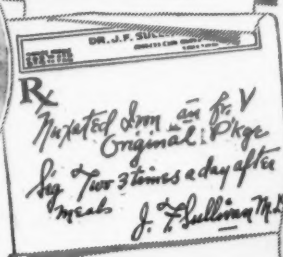 DR. J. F. SULL
Rx
Nuxated Iron āā fr. V
Original Pkge
Sig Two 3 times a day after
meals
J. F. Sullivan M.D.